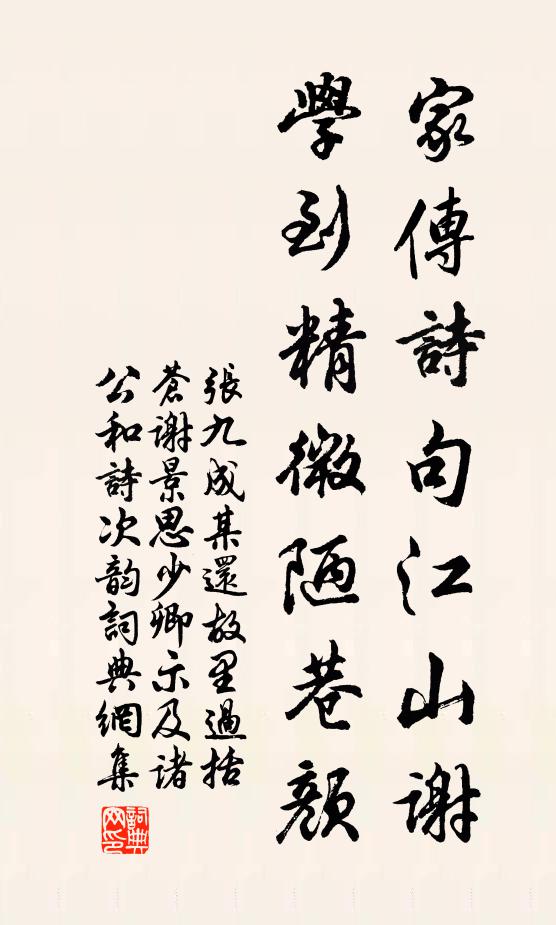 家傳詩句江山謝
學到精微陋巷顏
張九成某還故里過括
蒼謝景思少卿示及諸
公和詩次韵詞典網集
詞典
网印